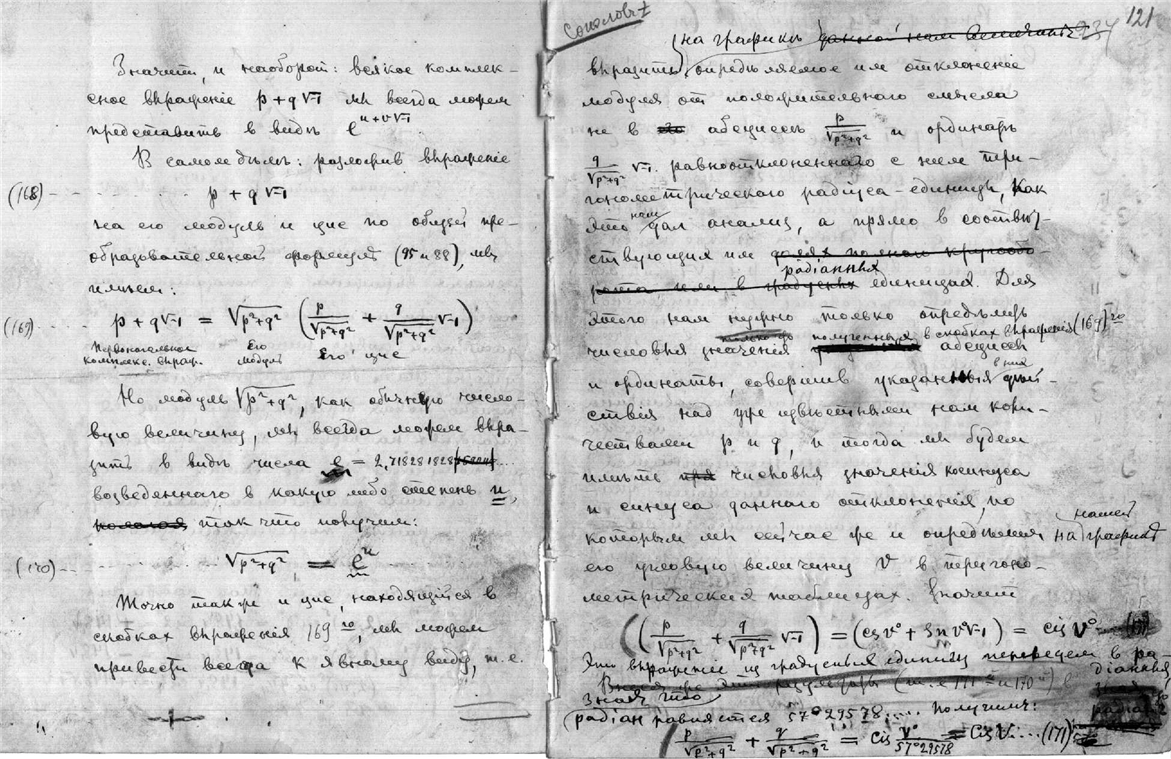 Значитъ, и наоборотъ: всякое комплек-
сное выраженіе p + q √-1 мы всегда можем
представить в видѣ e^{u+v√-1}
В самомъ дѣлѣ: разложив выраженіе
(168) p + q √-1
на его модуль и цис по общей пре-
образовательной формулѣ (95 и 88), мы
имѣем:
(169) p + q√-1 = √p²+q² (p/√p²+q² + q/√p²+q² √-1)
Первоначальное комплекс. выраж. Его модуль Его цис
Но модуль √p²+q², как обычную число-
вую величину, мы всегда можем выра-
зить в видѣ числа e = 2,718281828...
возведеннаго в какую либо степень u,
так что получим:
(170) √p²+q² = e^u
Точно также и цис, находящійся в
скобках выраженія 169го, мы можем
привести всегда к явному виду, т.е.
121
234
на графикѣ
выразить опредѣляемое им отклоненіе
модуля от положительнаго смысла
не в абсциссѣ p/√p²+q² и ординатѣ
q/√p²+q² √-1 равноотклоненнаго с ним три-
гонометрическаго радіуса-единицы, как
это нам дал анализ, а прямо в соотвѣт-
ствующих им
радіанных
единицах. Для
этого нам нужно только опредѣлить
полученных в скобках выраженія (169)го
числовыя значенія абсциссы
и ординаты, совершив указанныя в них дѣй-
ствія над уже извѣстными нам коли-
чествами p и q, и тогда мы будем
имѣть числовыя значенія косинуса
и синуса даннаго отклоненія, по
которым мы сейчас же и опредѣлим на нашей графикѣ
его угловую величину v в тригоно-
метрических таблицах. Значит
(p/√p²+q² + q/√p²+q² √-1) = (cs v° + sn v° √-1) = cis v°
Это выраженіе из градусных единиц переведем в ра-
діанныя
зная, что
радіан равняется 57°29578.... Получим:
p/√p²+q² + q/√p²+q² = cis v°/57°29578 = cis v.... (171)